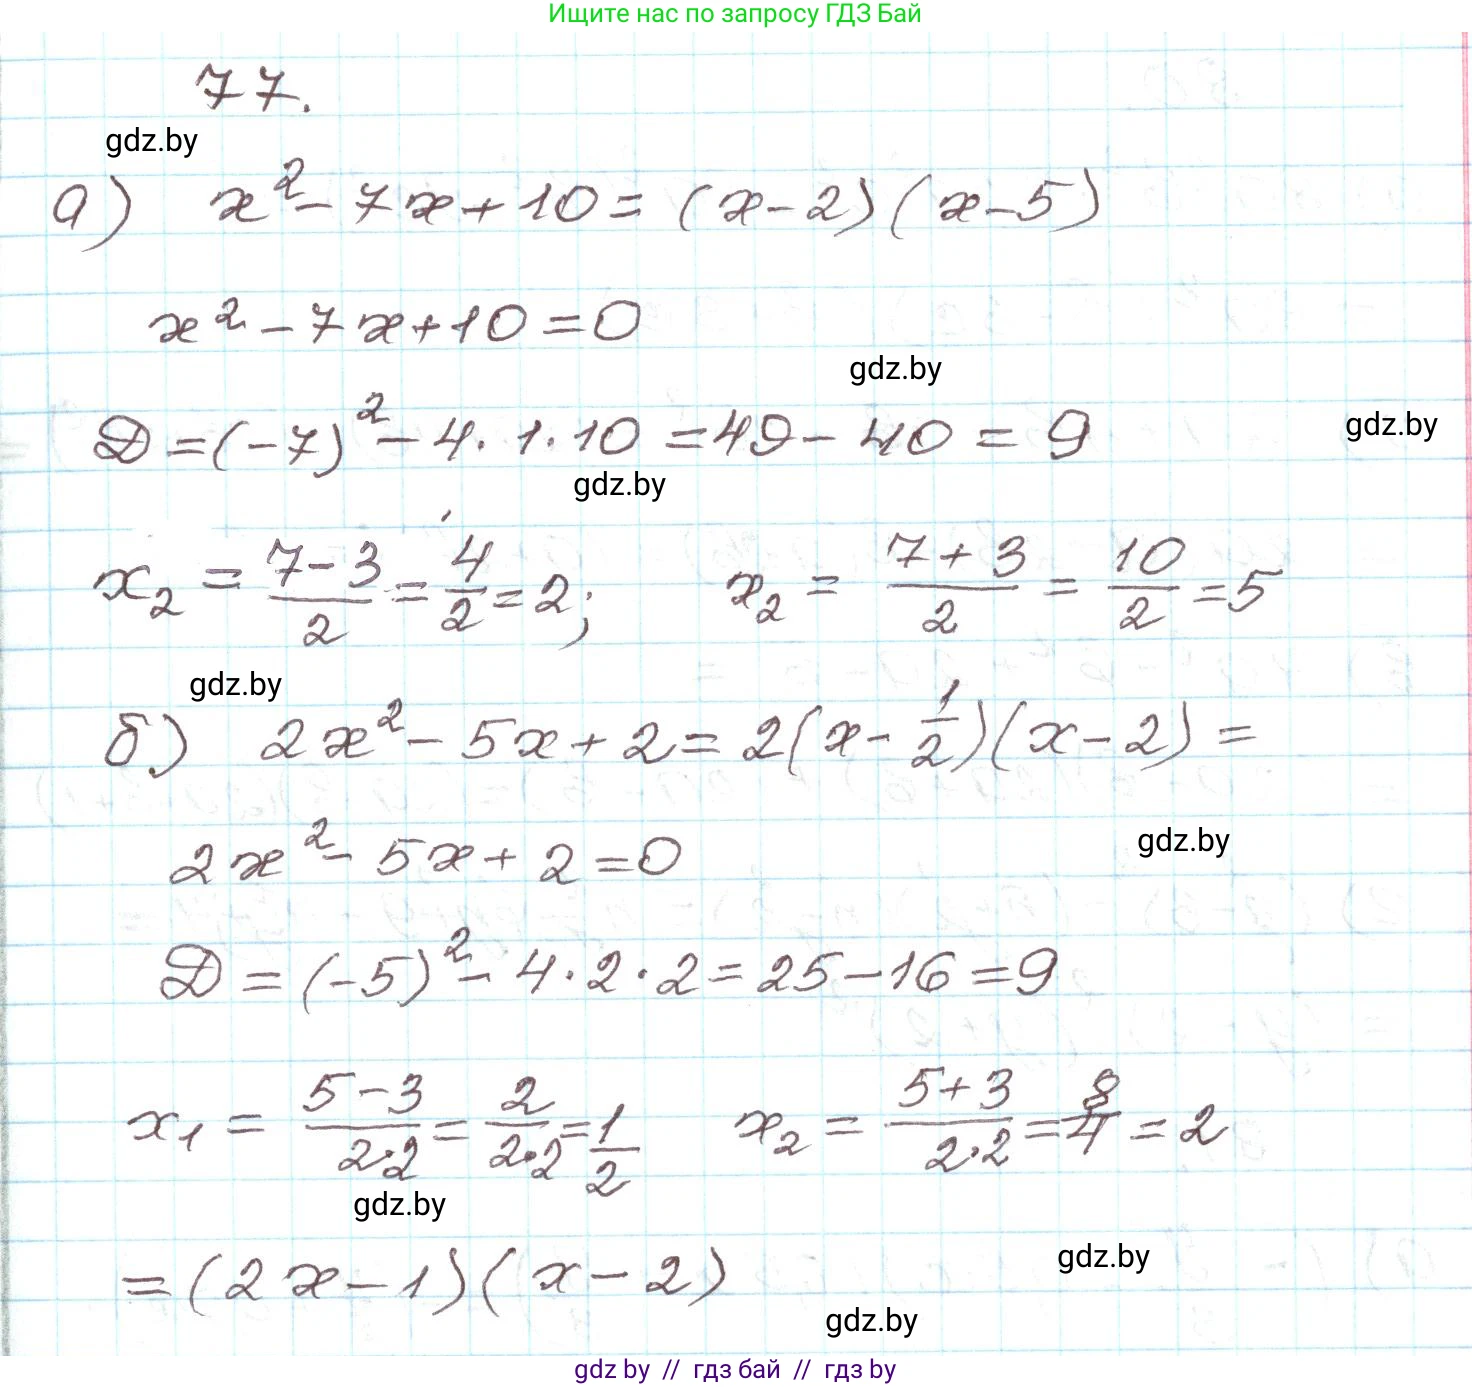 Ищите нас по запросу ГДЗ Бай
77.
gdz.by
а) x² - 7x + 10 = (x - 2)(x - 5)
x² - 7x + 10 = 0
gdz.by
gdz.by
D = (-7)² - 4 · 1 · 10 = 49 - 40 = 9
gdz.by
x₂ = (7 - 3)/2 = 4/2 = 2; x₂ = (7 + 3)/2 = 10/2 = 5
gdz.by
б) 2x² - 5x + 2 = 2(x - 1/2)(x - 2) =
gdz.by
2x² - 5x + 2 = 0
D = (-5)² - 4 · 2 · 2 = 25 - 16 = 9
x₁ = (5 - 3)/(2·2) = 2/(2·2) = 1/2 x₂ = (5 + 3)/(2·2) = 8/4 = 2
gdz.by
gdz.by
= (2x - 1)(x - 2)
gdz.by
gdz by // гдз бай // гдз by